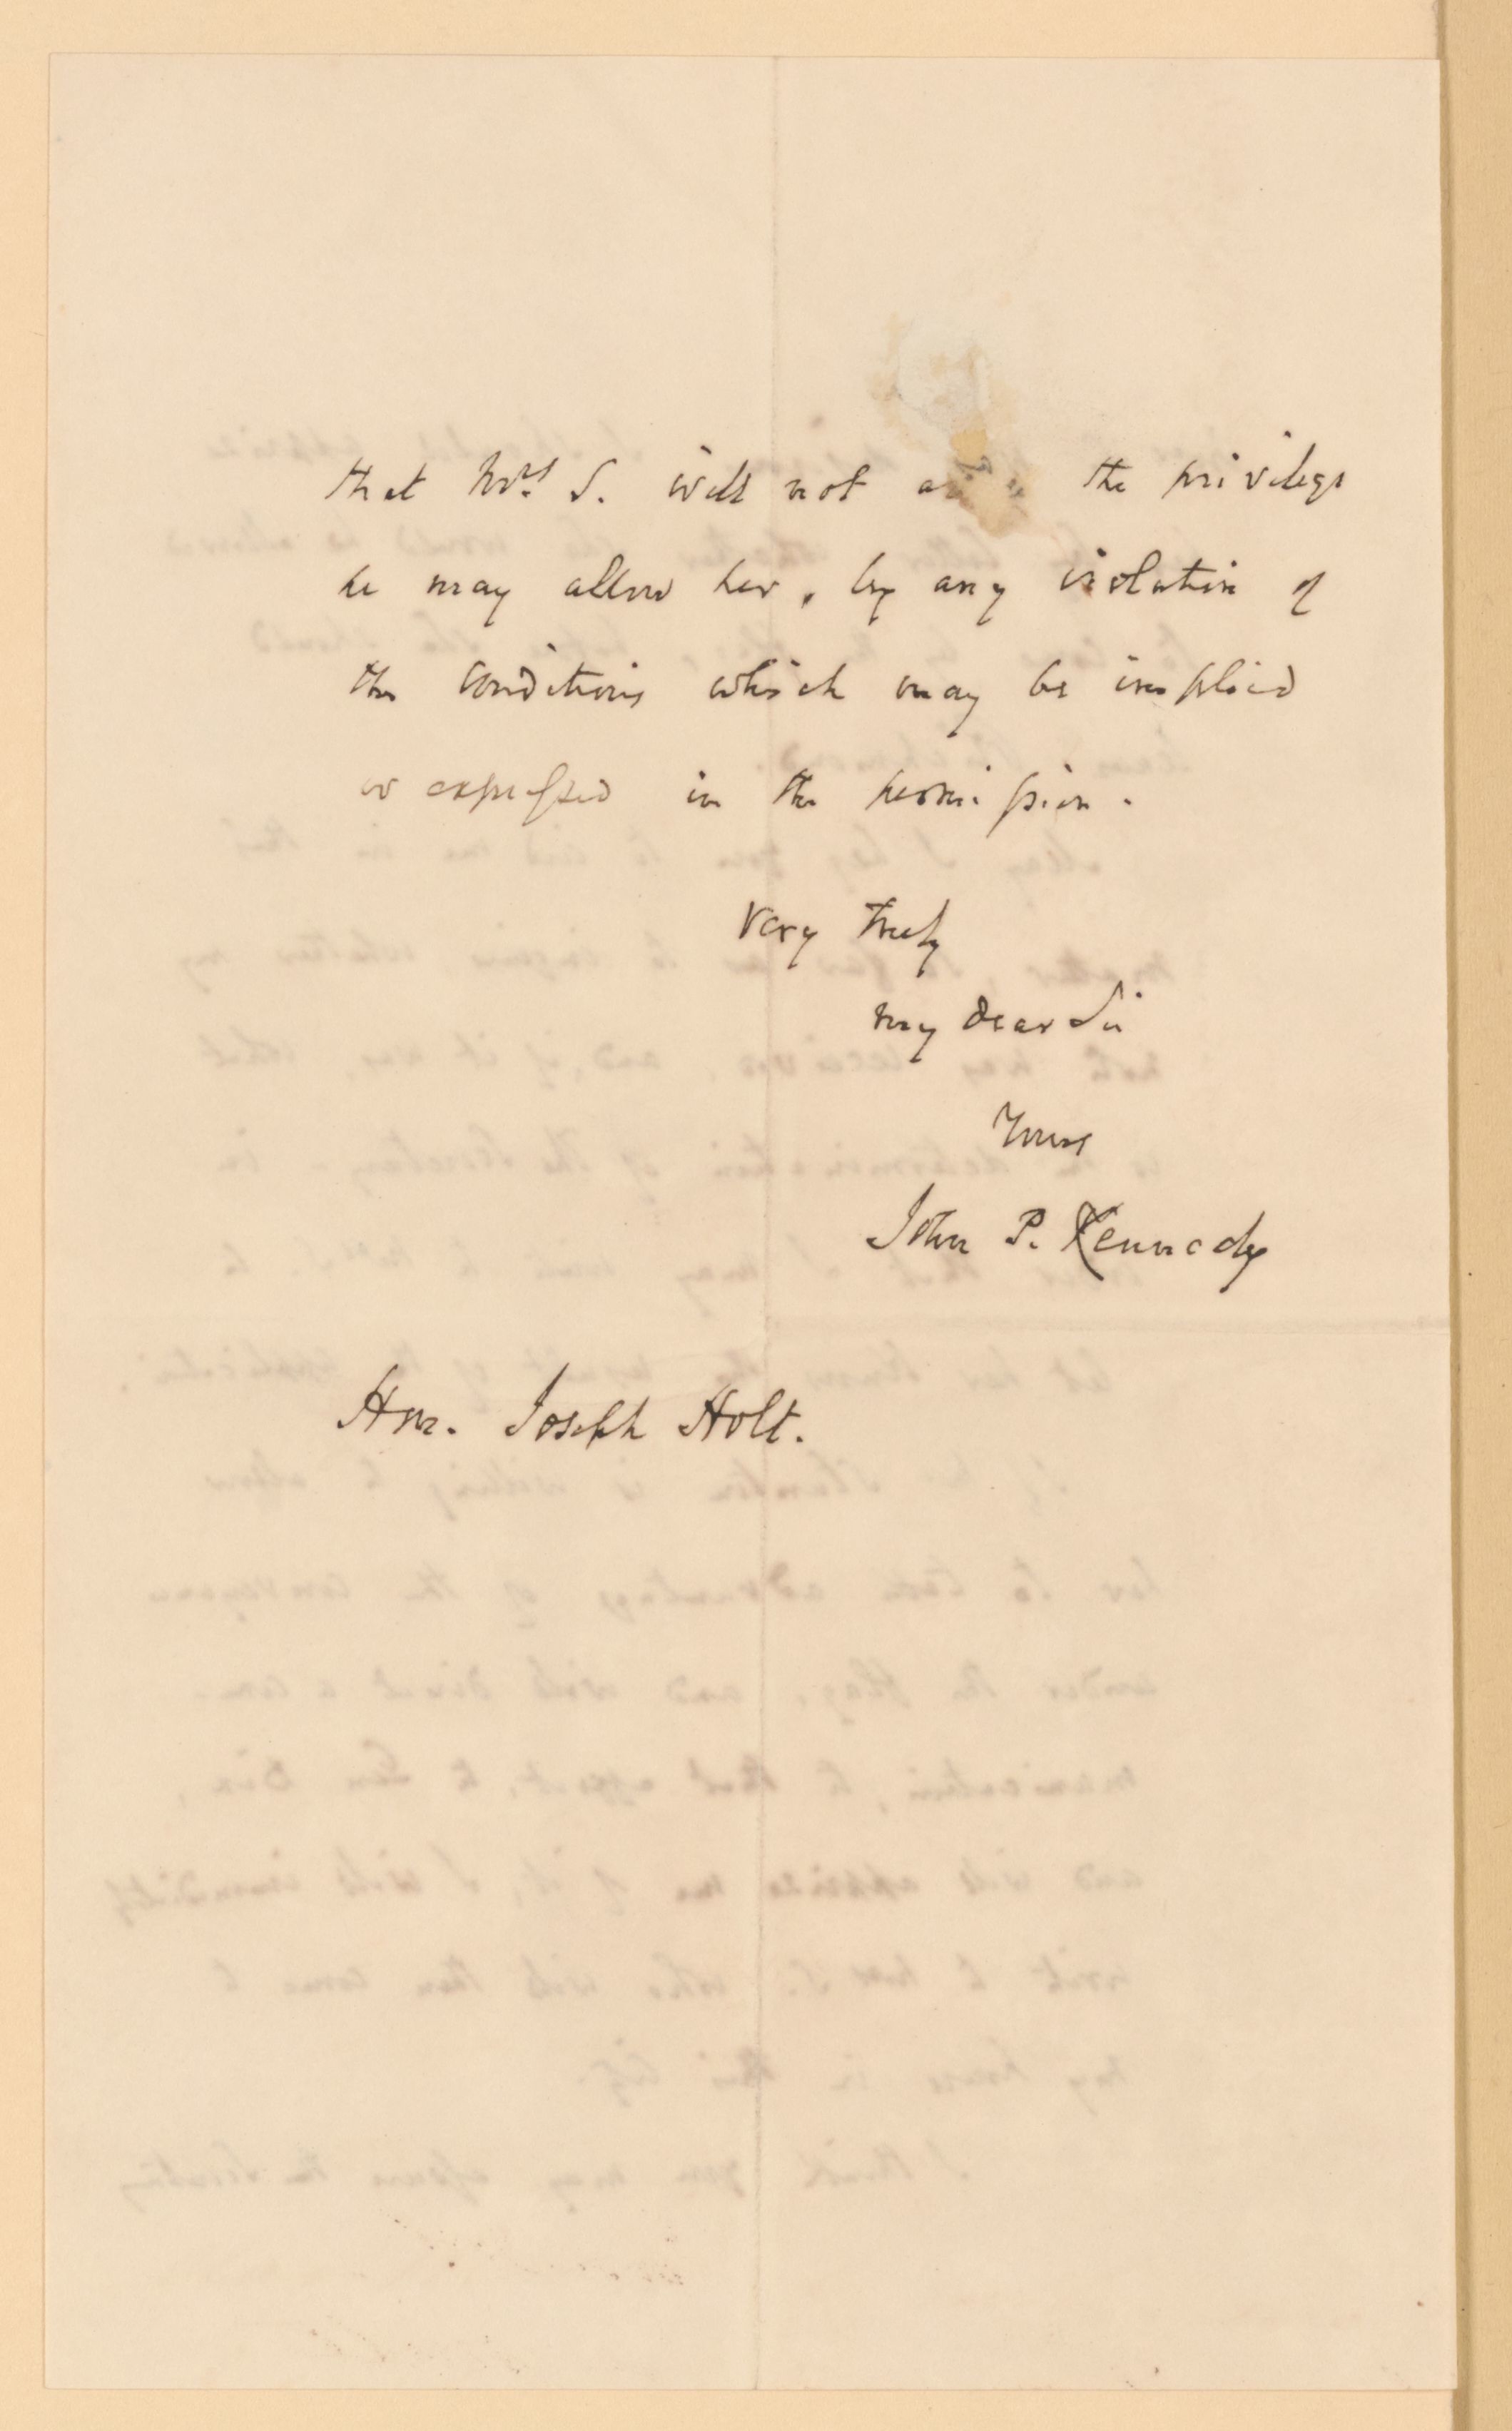 that Mrs. S. will not the privilege
he may allow her, by any violation of
the conditions which may be implied
or expressed in the permission.
Very truly
my dear Sir
Yours
John P. Kennedy
Hon. Joseph Holt.